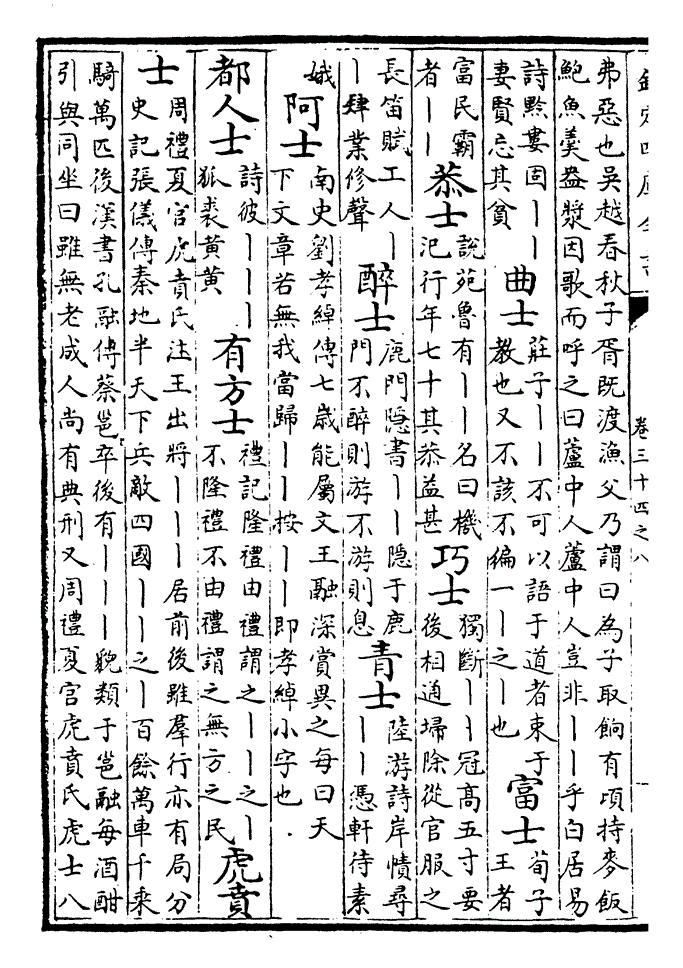 欽定四庫全書
卷三十四之八
弗惡也吳越春秋子胥既渡漁父乃謂曰為子取餉有頃持麥飯
鮑魚羹盎漿因歌而呼之曰蘆中人蘆中人豈非丨丨乎白居易
詩黔婁固丨丨
妻賢忘其貧
曲士
莊子丨丨不可以語于道者束于
教也又不該不徧一丨之丨也
富士
荀子
王者
富民霸
者丨丨
恭士
說苑魯有丨丨名曰機
汜行年七十其恭益甚
巧士
獨斷丨丨冠高五寸要
後相通埽除從官服之
長笛賦工人丨
丨肄業修聲
醉士
鹿門隱書丨丨隱于鹿
門不醉則游不游則息
青士
陸游詩岸幘尋
丨丨憑軒待素
娥
阿士
南史劉孝綽傳七歲能屬文王融深賞異之每曰天
下文章若無我當歸丨丨按丨丨即孝綽小字也
都人士
詩彼丨丨丨
狐裘黃黃
有方士
禮記隆禮由禮謂之丨丨之丨
不隆禮不由禮謂之無方之民
虎賁
士
周禮夏官虎賁氏注王出將丨丨丨居前後雖羣行亦有局分
史記張儀傳秦地半天下兵敵四國丨丨之丨百餘萬車千乘
騎萬匹後漢書孔融傳蔡邕卒後有丨丨丨貌類于邕融每酒酣
引與同坐曰雖無老成人尚有典刑又周禮夏官虎賁氏虎士八